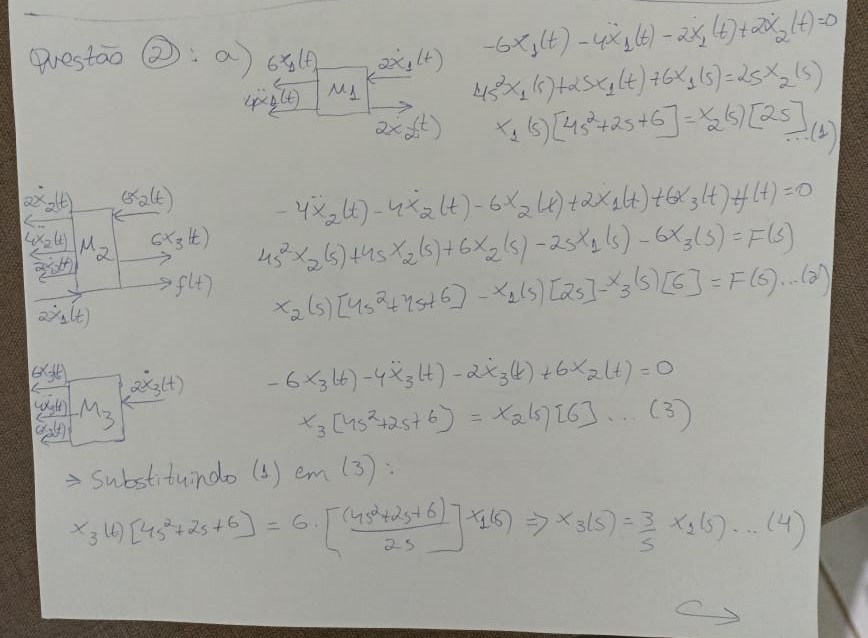 Questão 2: a)
6x₁(t)
4ẍ₁(t)
M₁
2ẋ₁(t)
2ẋ₂(t)
-6x₁(t) - 4ẍ₁(t) - 2ẋ₁(t) + 2ẋ₂(t) = 0
4s²x₁(s) + 2sx₁(t) + 6x₁(s) = 2sx₂(s)
x₁(s)[4s²+2s+6] = x₂(s)[2s] ...(1)
2ẋ₂(t)
4ẍ₂(t)
2ẋ₂(t)
2ẋ₁(t)
M₂
6x₂(t)
6x₃(t)
f(t)
-4ẍ₂(t) - 4ẋ₂(t) - 6x₂(t) + 2ẋ₁(t) + 6x₃(t) + f(t) = 0
4s²x₂(s) + 4sx₂(s) + 6x₂(s) - 2sx₁(s) - 6x₃(s) = F(s)
x₂(s)[4s²+4s+6] - x₁(s)[2s] - x₃(s)[6] = F(s) ...(2)
6x₃(t)
4ẍ₃(t)
6x₂(t)
M₃
2ẋ₃(t)
-6x₃(t) - 4ẍ₃(t) - 2ẋ₃(t) + 6x₂(t) = 0
x₃[4s²+2s+6] = x₂(s)[6] ... (3)
→ Substituindo (1) em (3):
x₃(t)[4s²+2s+6] = 6·[(4s²+2s+6)/2s]x₁(s) ⇒ x₃(s) = 3/s x₁(s) ... (4)